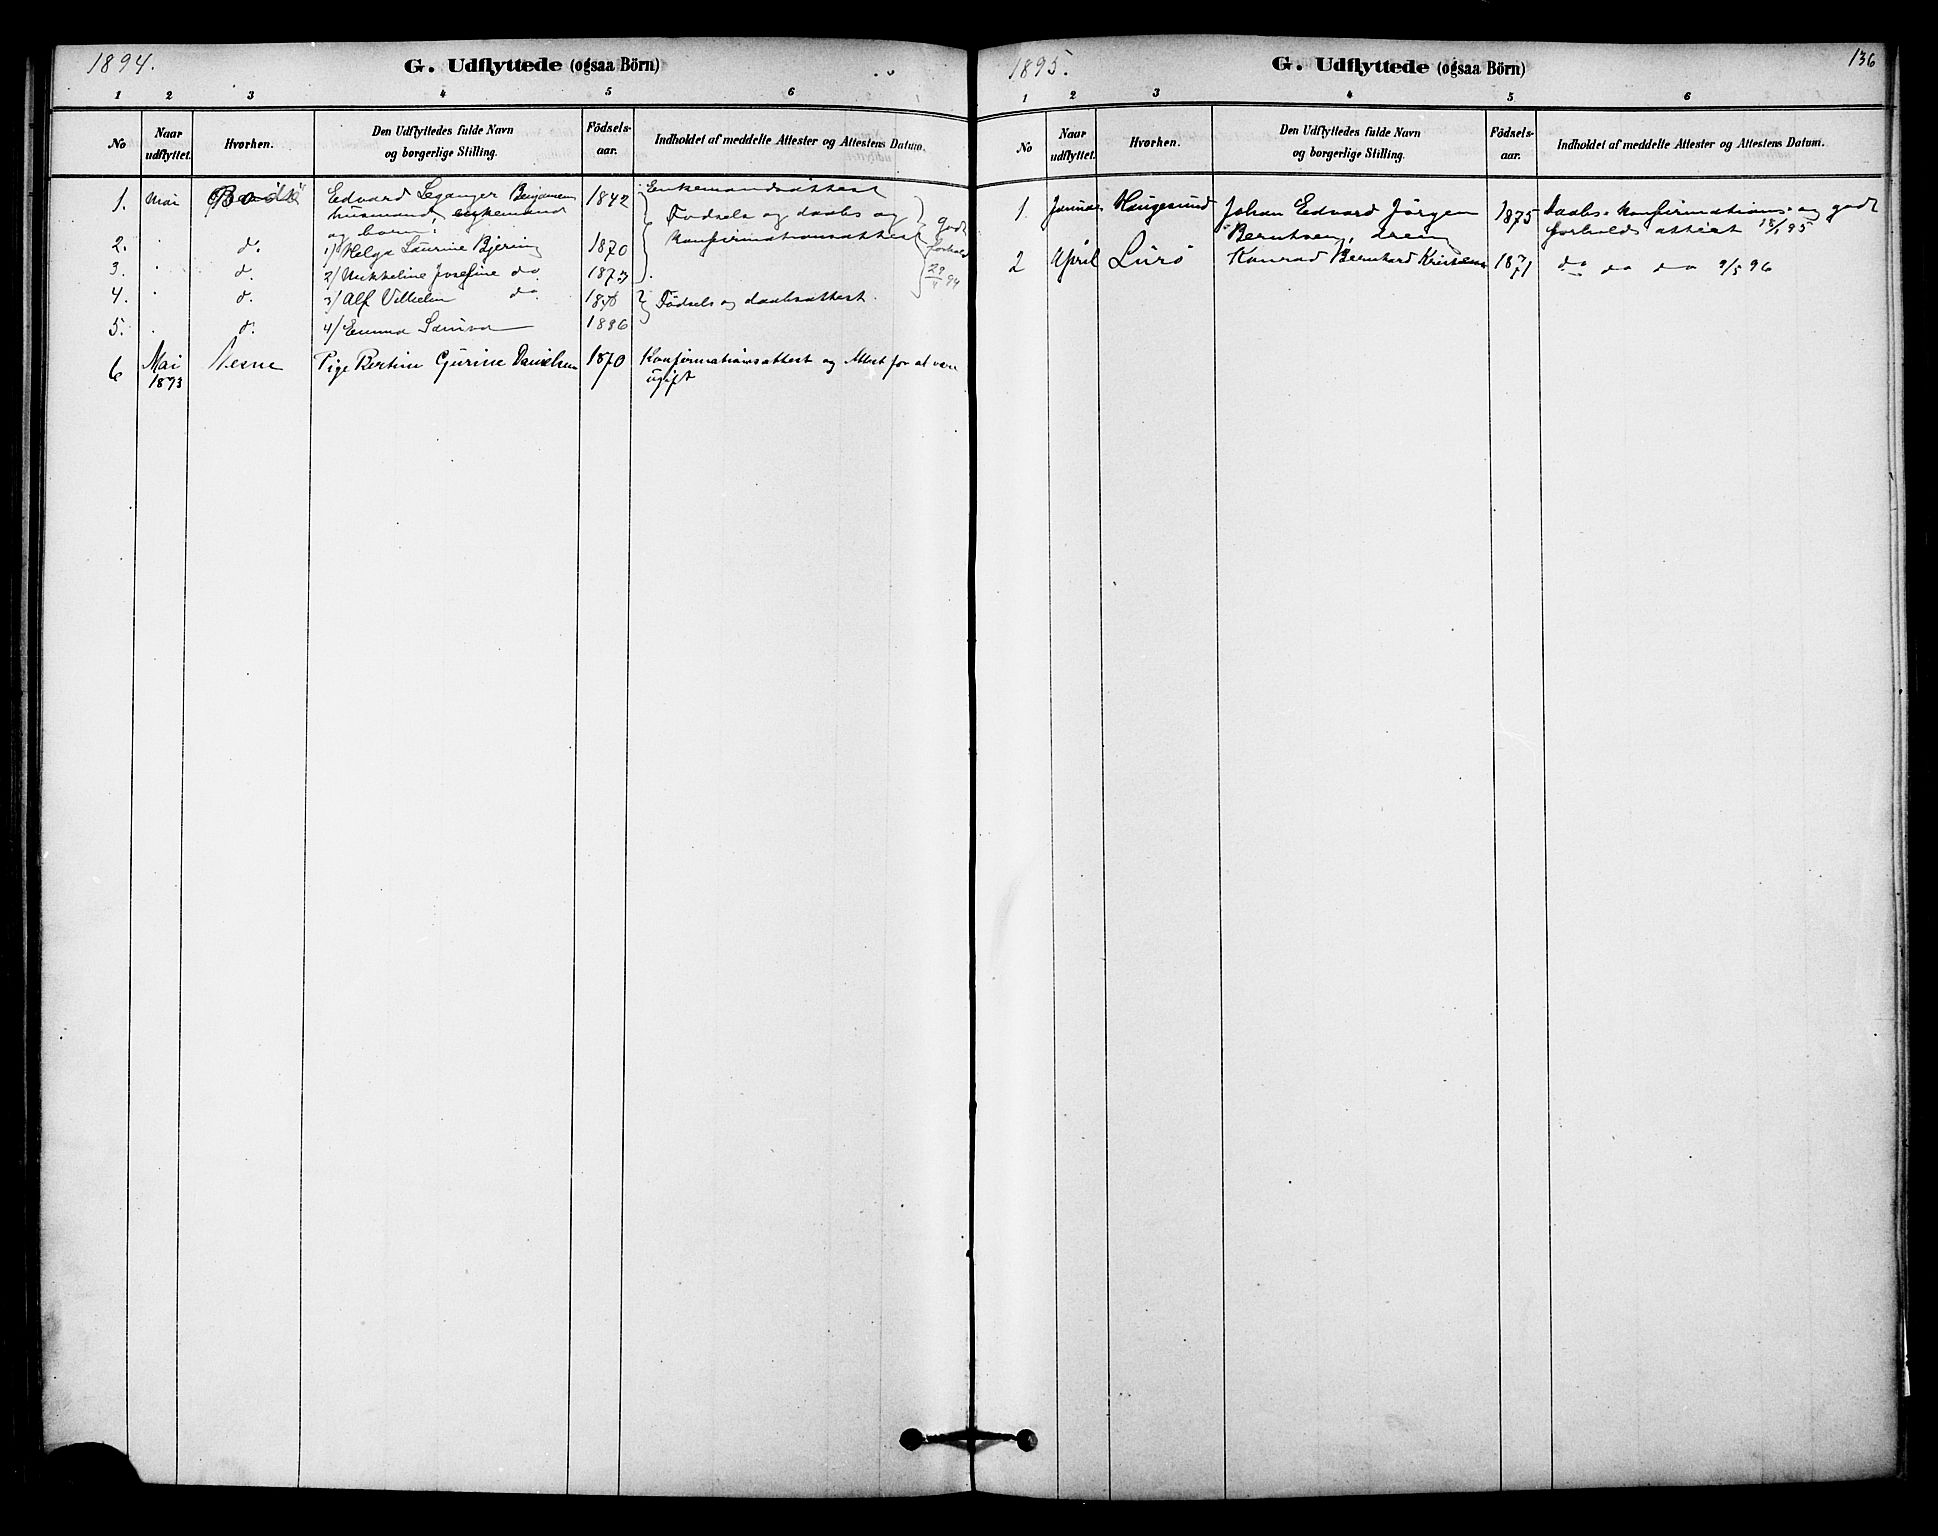 1894.
G. Udflyttede (ogsaa Börn)
1 2 3 4 5 6
No
Naar udflyttet.
Hvorhen.
Den Udflyttedes fulde Navn og borgerlige Stilling.
Födsels-aar.
Indholdet af meddelte Attester og Attestens Datum.
1. Mai Bodö Edvard Leganger Benjaminsen 1842 Enkemandsattest
husmand, enkemand Fodsels og daabs og
og børn:
2. " d. 1) Helga Laurine Bjering 1870 konfirmationsattest
godt forhold 29/4 94
3. " d. 2) Mikkeline Josefine do 1873
4. " d. 3) Alf Vilhelm do. Födsels og daabsattest.
5. " d. 4) Emma 1886
6 Mai 1893 Nesne Pige Bertine Gurine Danielsen 1870 Konfirmationsattest og Attest for at være
ugift
1895.
G. Udflyttede (ogsaa Börn)
136
1 2 3 4 5 6
No
Naar udflyttet.
Hvorhen.
Den Udflyttedes fulde Navn og borgerlige Stilling.
Födsels-aar.
Indholdet af meddelte Attester og Attestens Datum.
1. Januar Haugesund Johan Edvard Jörgen 1875 Daabs- konfirmations- og godt
Berntsen, dreng forholds attest 18/1 95
2 April Lurö Konrad Bernhard Kristensen 1871 do do do 9/5 96